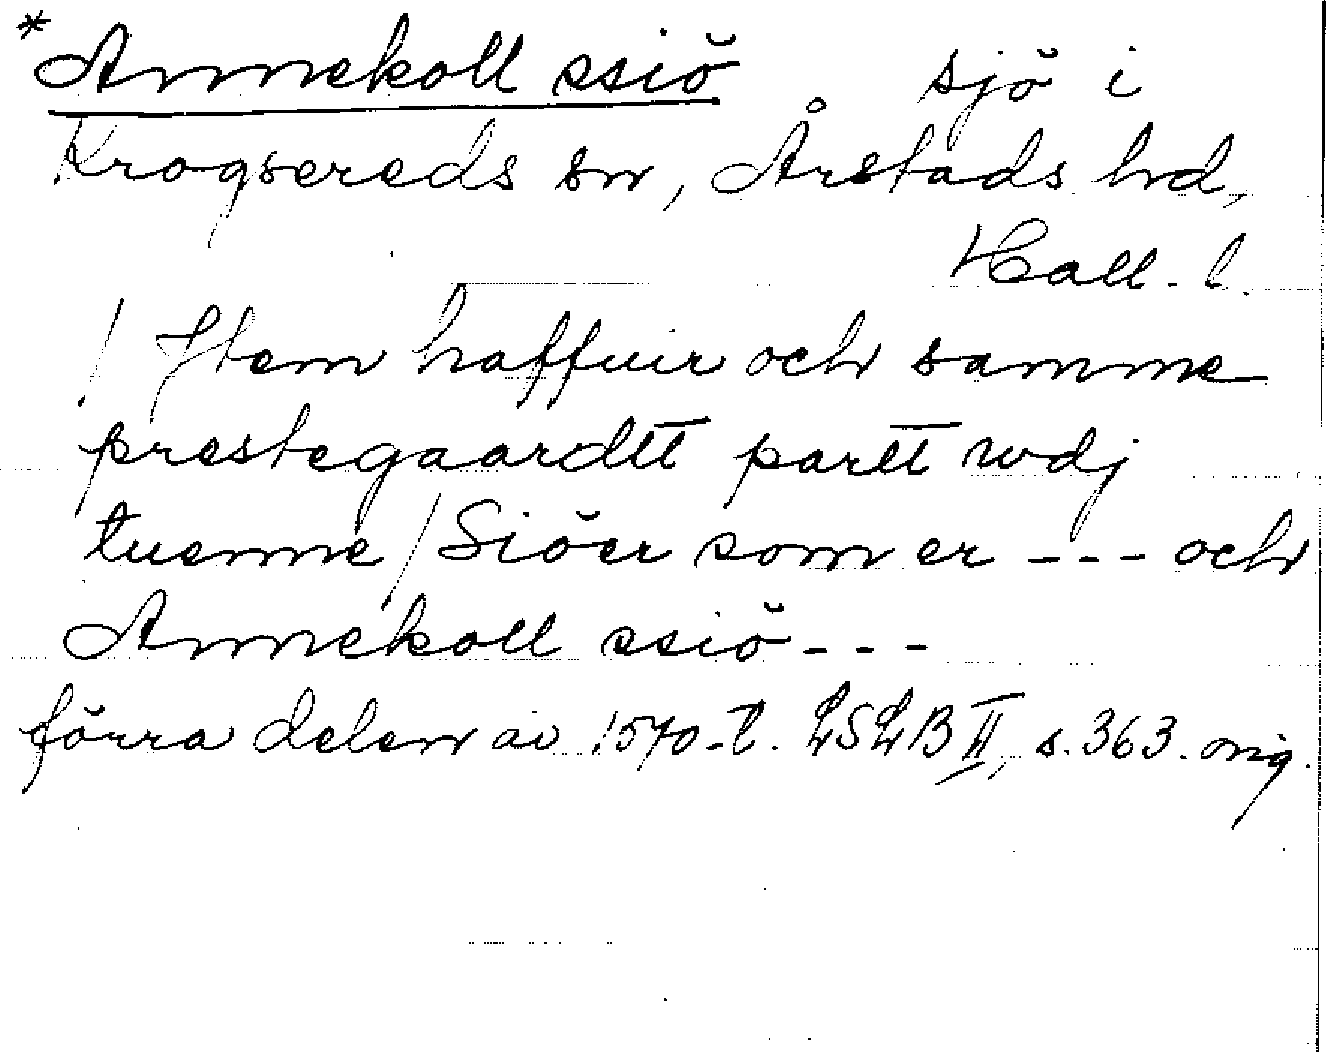 *Annekoll ssiö sjö i
Krogsereds sn, Årstads hd,
Hall. l.
/ Jtem haffuir och samme
prestegaardtt partt wdj
tuenne / Siöer som er - - - och
Annekoll ssiö - - -
förra delen av 1570-t. LSLB II, s. 363. orig.